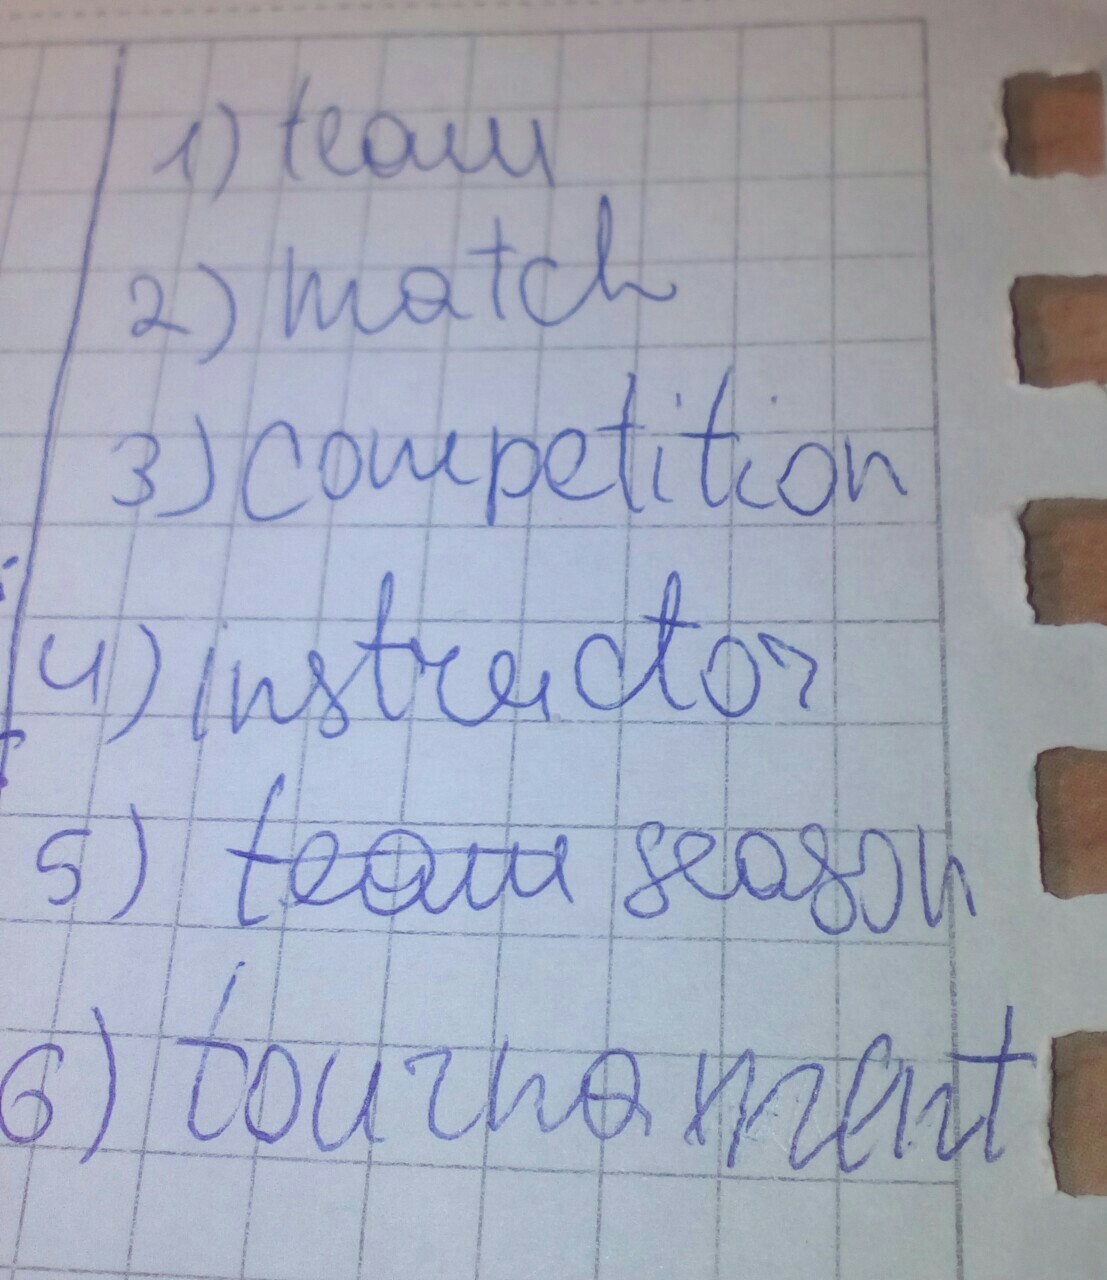 1) team
2) match
3) competition
4) instructor
5) team season
6) tournament